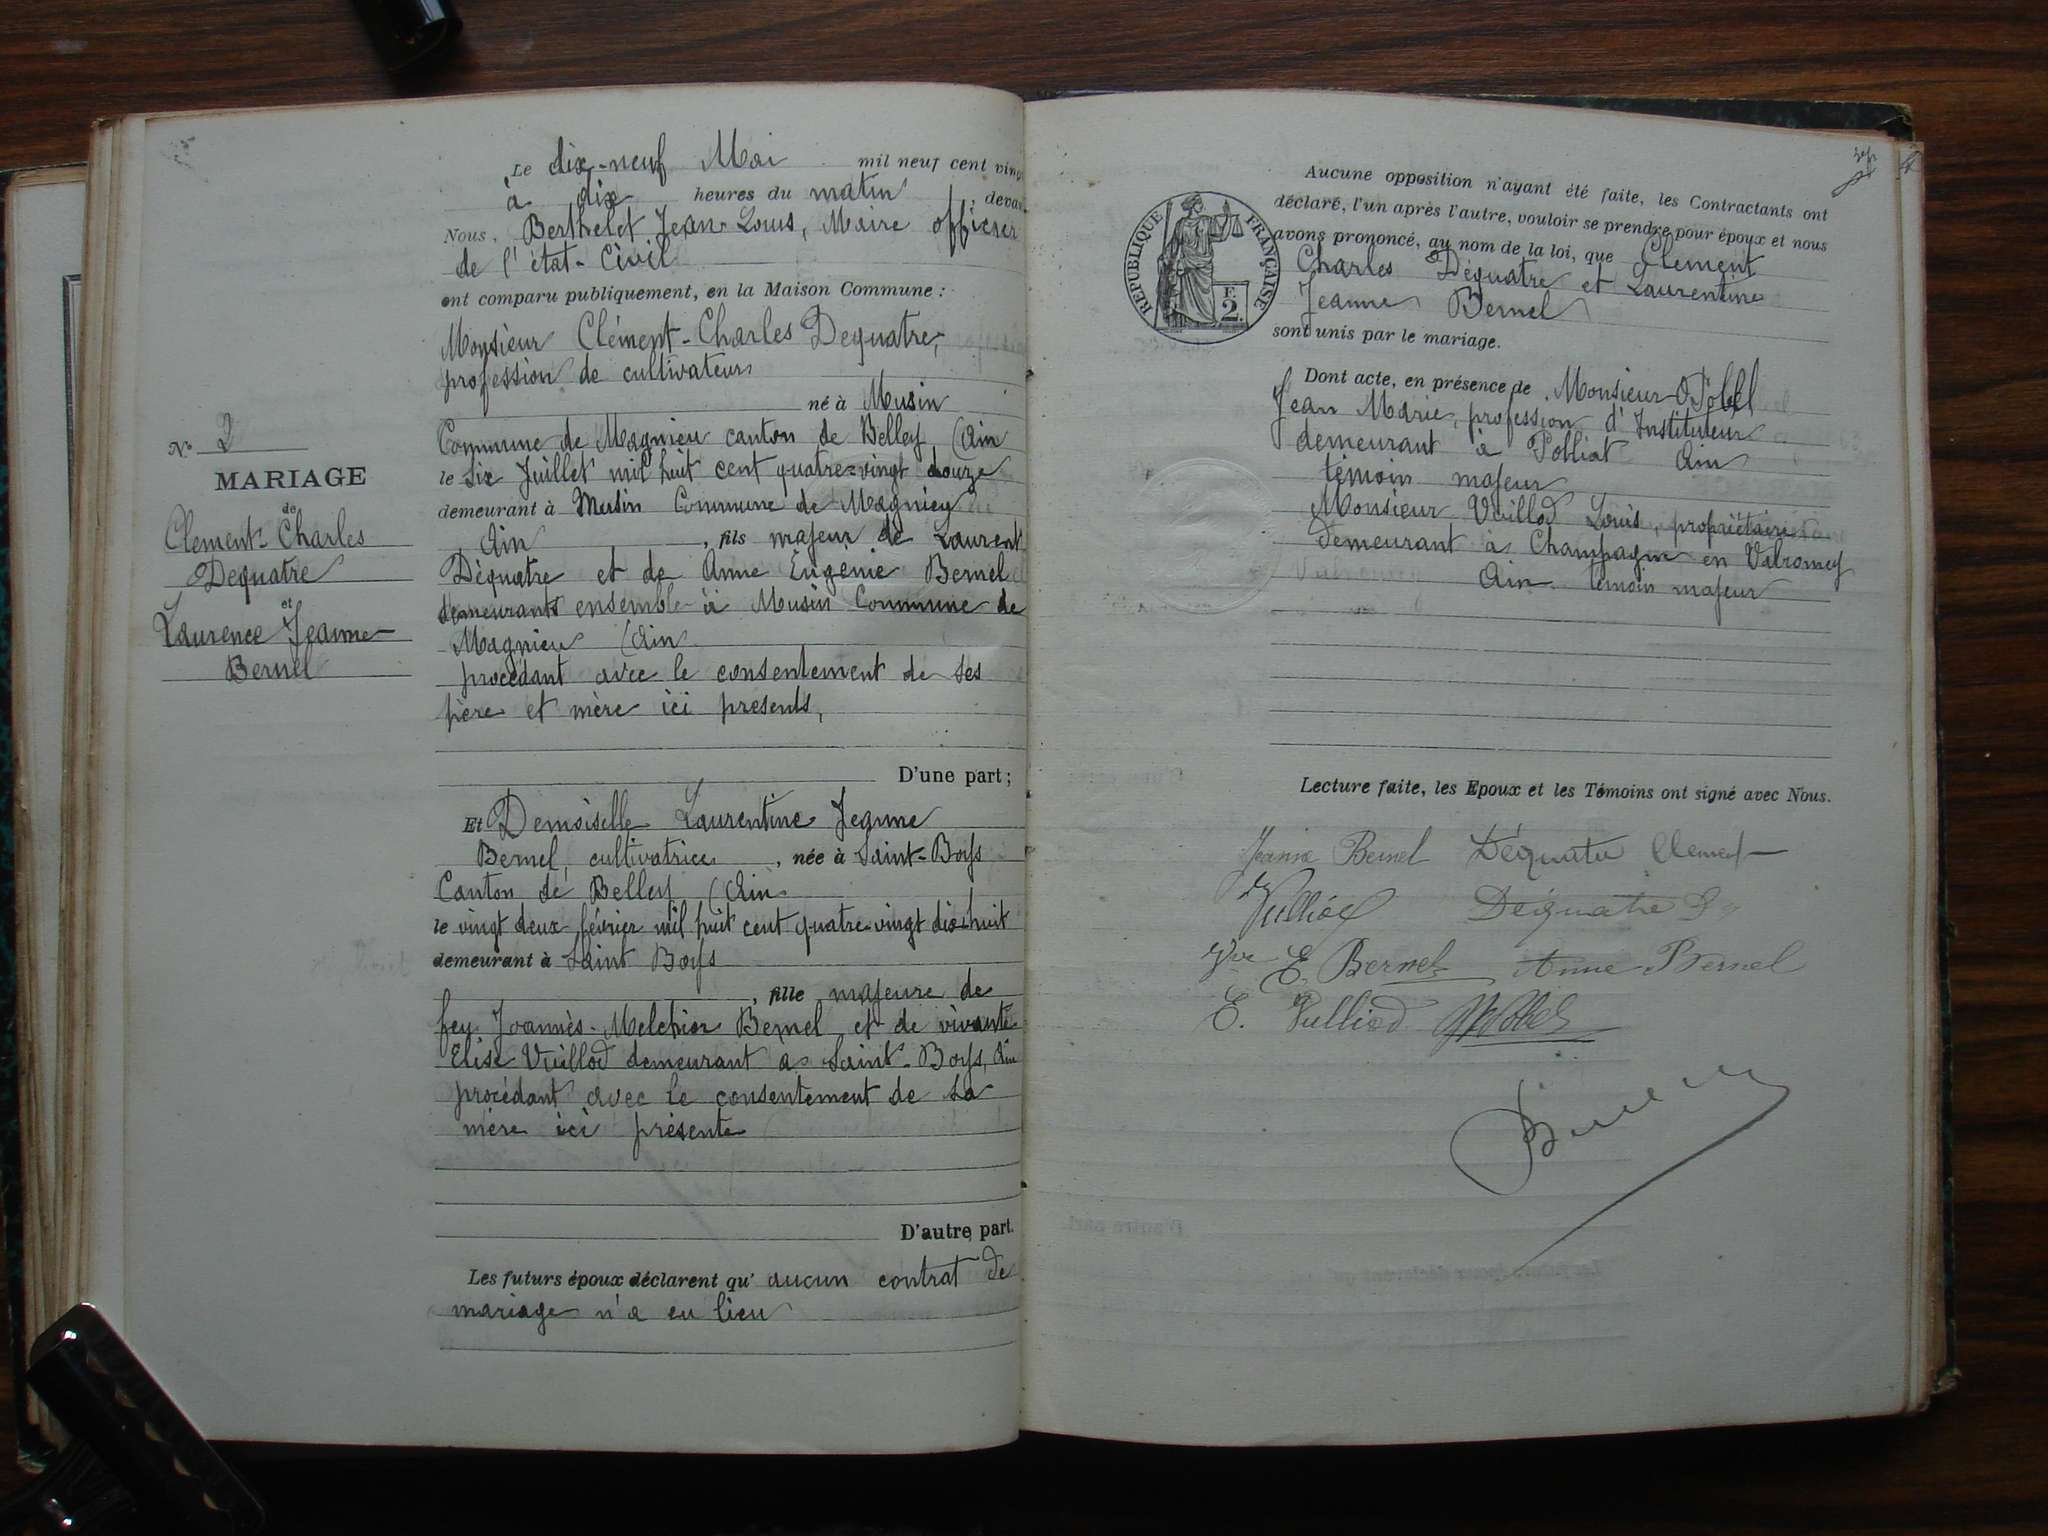 Le dix-neuf Mai mil neuf cent vingt
à dix heures du matin, devant
Nous, Berthelet Jean-Louis, Maire officier
de l'état-Civil
ont comparu publiquement, en la Maison Commune :
Monsieur Clément-Charles Dequatre,
profession de cultivateur
né à Musin
Commune de Magnieu canton de Belley (Ain
le six Juillet mil huit cent quatre-vingt douze
demeurant à Musin Commune de Magnieu
Ain, fils majeur de Laurent
Déquatre et de Anne Eugénie Bernel
demeurants ensemble à Musin Commune de
Magnieu (Ain
procédant avec le consentement de ses
père et mère ici présents,
D'une part ;
Et Demoiselle Laurentine Jeanne
Bernel, cultivatrice, née à Saint-Boys
Canton de Belley (Ain
le vingt deux février mil huit cent quatre-vingt dix-huit
demeurant à Saint Boys
, fille majeure de
feu Joannès-Melchior Bernel et de vivante
Elise Vuillod demeurant à Saint-Boys, Ain
procédant avec le consentement de sa
mère ici présente
D'autre part.
Les futurs époux déclarent qu' aucun contrat de
mariage n'a eu lieu
N° 2
MARIAGE
de
Clement-Charles
Dequatre
et
Laurence Jeanne
Bernel
RÉPUBLIQUE FRANÇAISE
F.
2.
Aucune opposition n'ayant été faite, les Contractants ont
déclaré, l'un après l'autre, vouloir se prendre pour époux et nous
avons prononcé, au nom de la loi, que Clement
Charles Déquatre et Laurentine
Jeanne Bernel
sont unis par le mariage.
Dont acte, en présence de Monsieur
Jean Marie, profession d'Instituteur
demeurant à Polliat Ain
témoin majeur
Monsieur Vuillod Louis, propriétaire
demeurant à Champagne en Valromey
Ain témoin majeur
Lecture faite, les Epoux et les Témoins ont signé avec Nous.
Jeanne Bernel Déquatre Clement
Déquatre
E. Bernel Anne Bernel
E. Vulliod